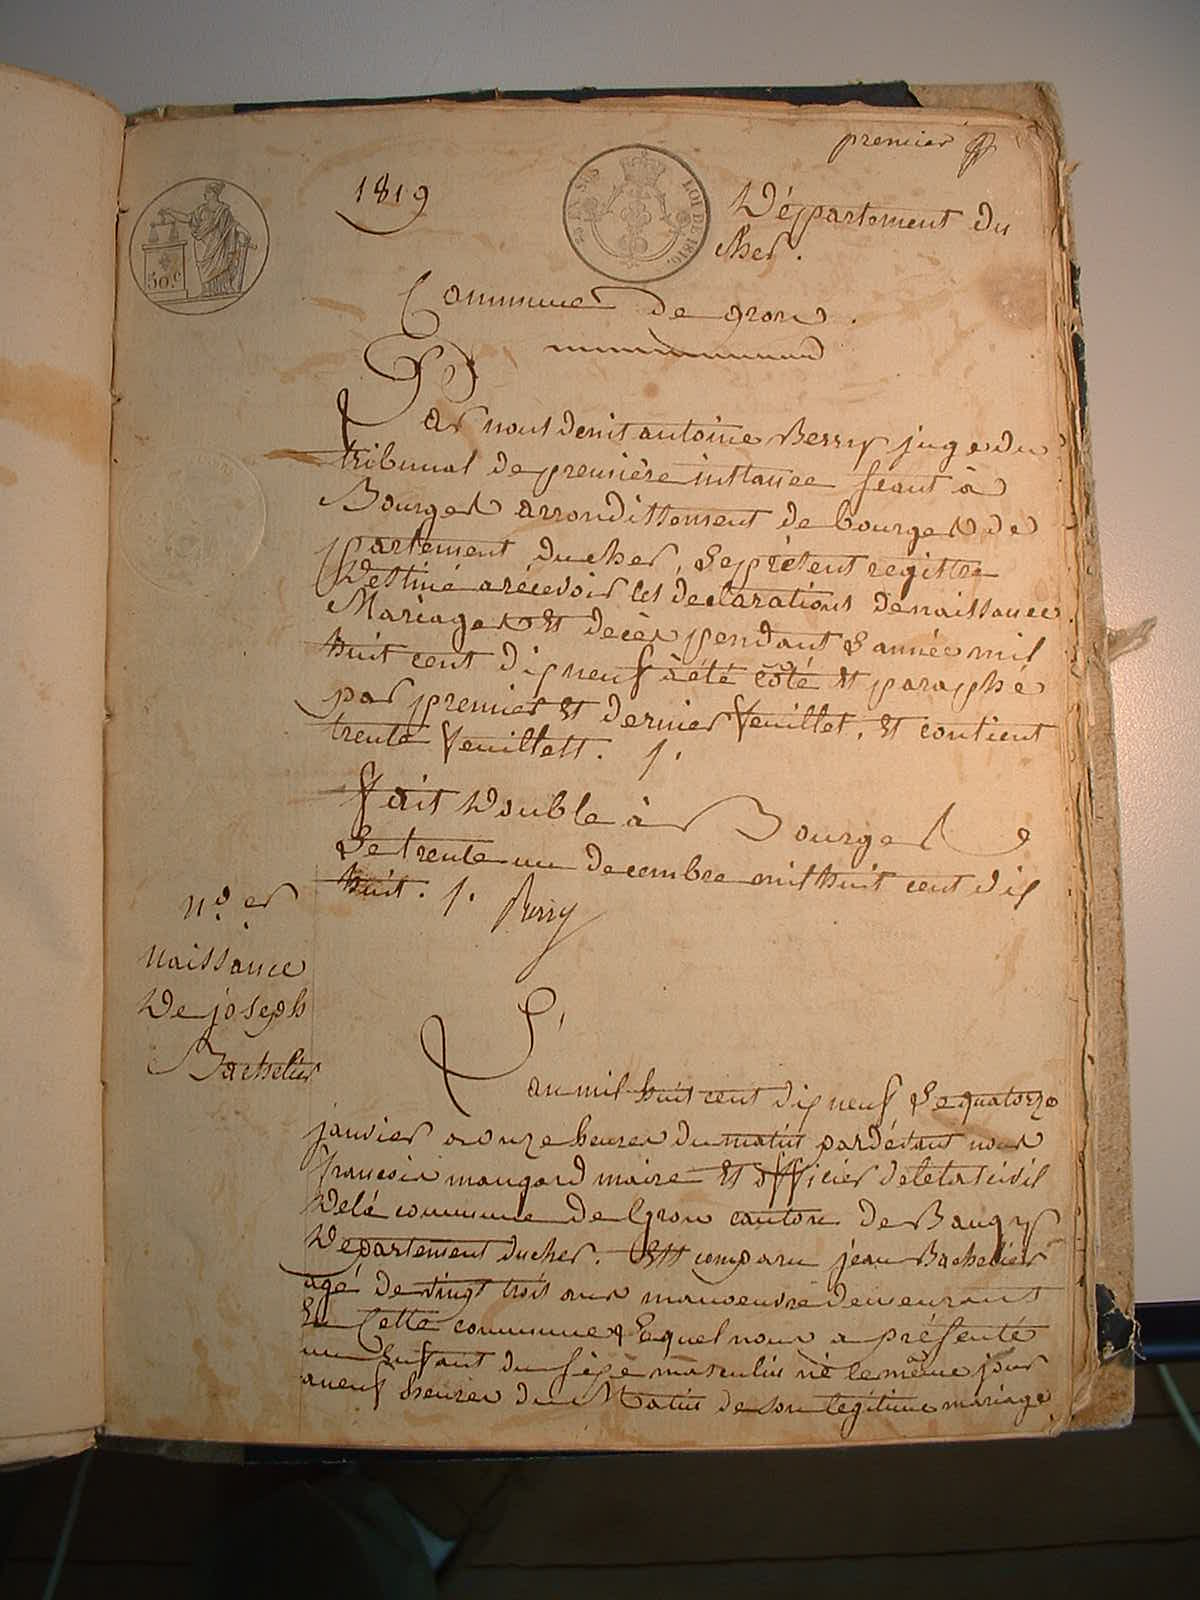 premier
1819
50.c
25 EN SUS
LOI DE 1816.
Département du
cher.
Commune de gron.
Par nous denis antoine Berry juge du
tribunal de première instance séant à
Bourges arrondissement de bourges de
partement du cher, Le présent registre
Destiné a récevoir les declarations de naissance
Mariages et decès pendant L'année mil
huit cent dix neuf à été côté et paraphé
par premier et dernier feuillet, et contient
trente feuillets. /.
fait Double à Bourges
Le trente un decembre mil huit cent dix
huit. /. Berry
n.º 1.er
naissance
De joseph
Bachelier
L'an mil huit cent dix neuf Le quatorze
janvier a onze heures du matin pardevant nous
françois maugard maire et officier de letat sivil
Delá commune de Gron canton de Baugy
Departement du cher. Est comparu jean Bachelier
agé de vingt trois ans manoeuvre demeurant
En Cette commune Lequel nous a présenté
un Enfant du sexe masculin né le même jour
a neuf heures du Matin de son légitime mariage